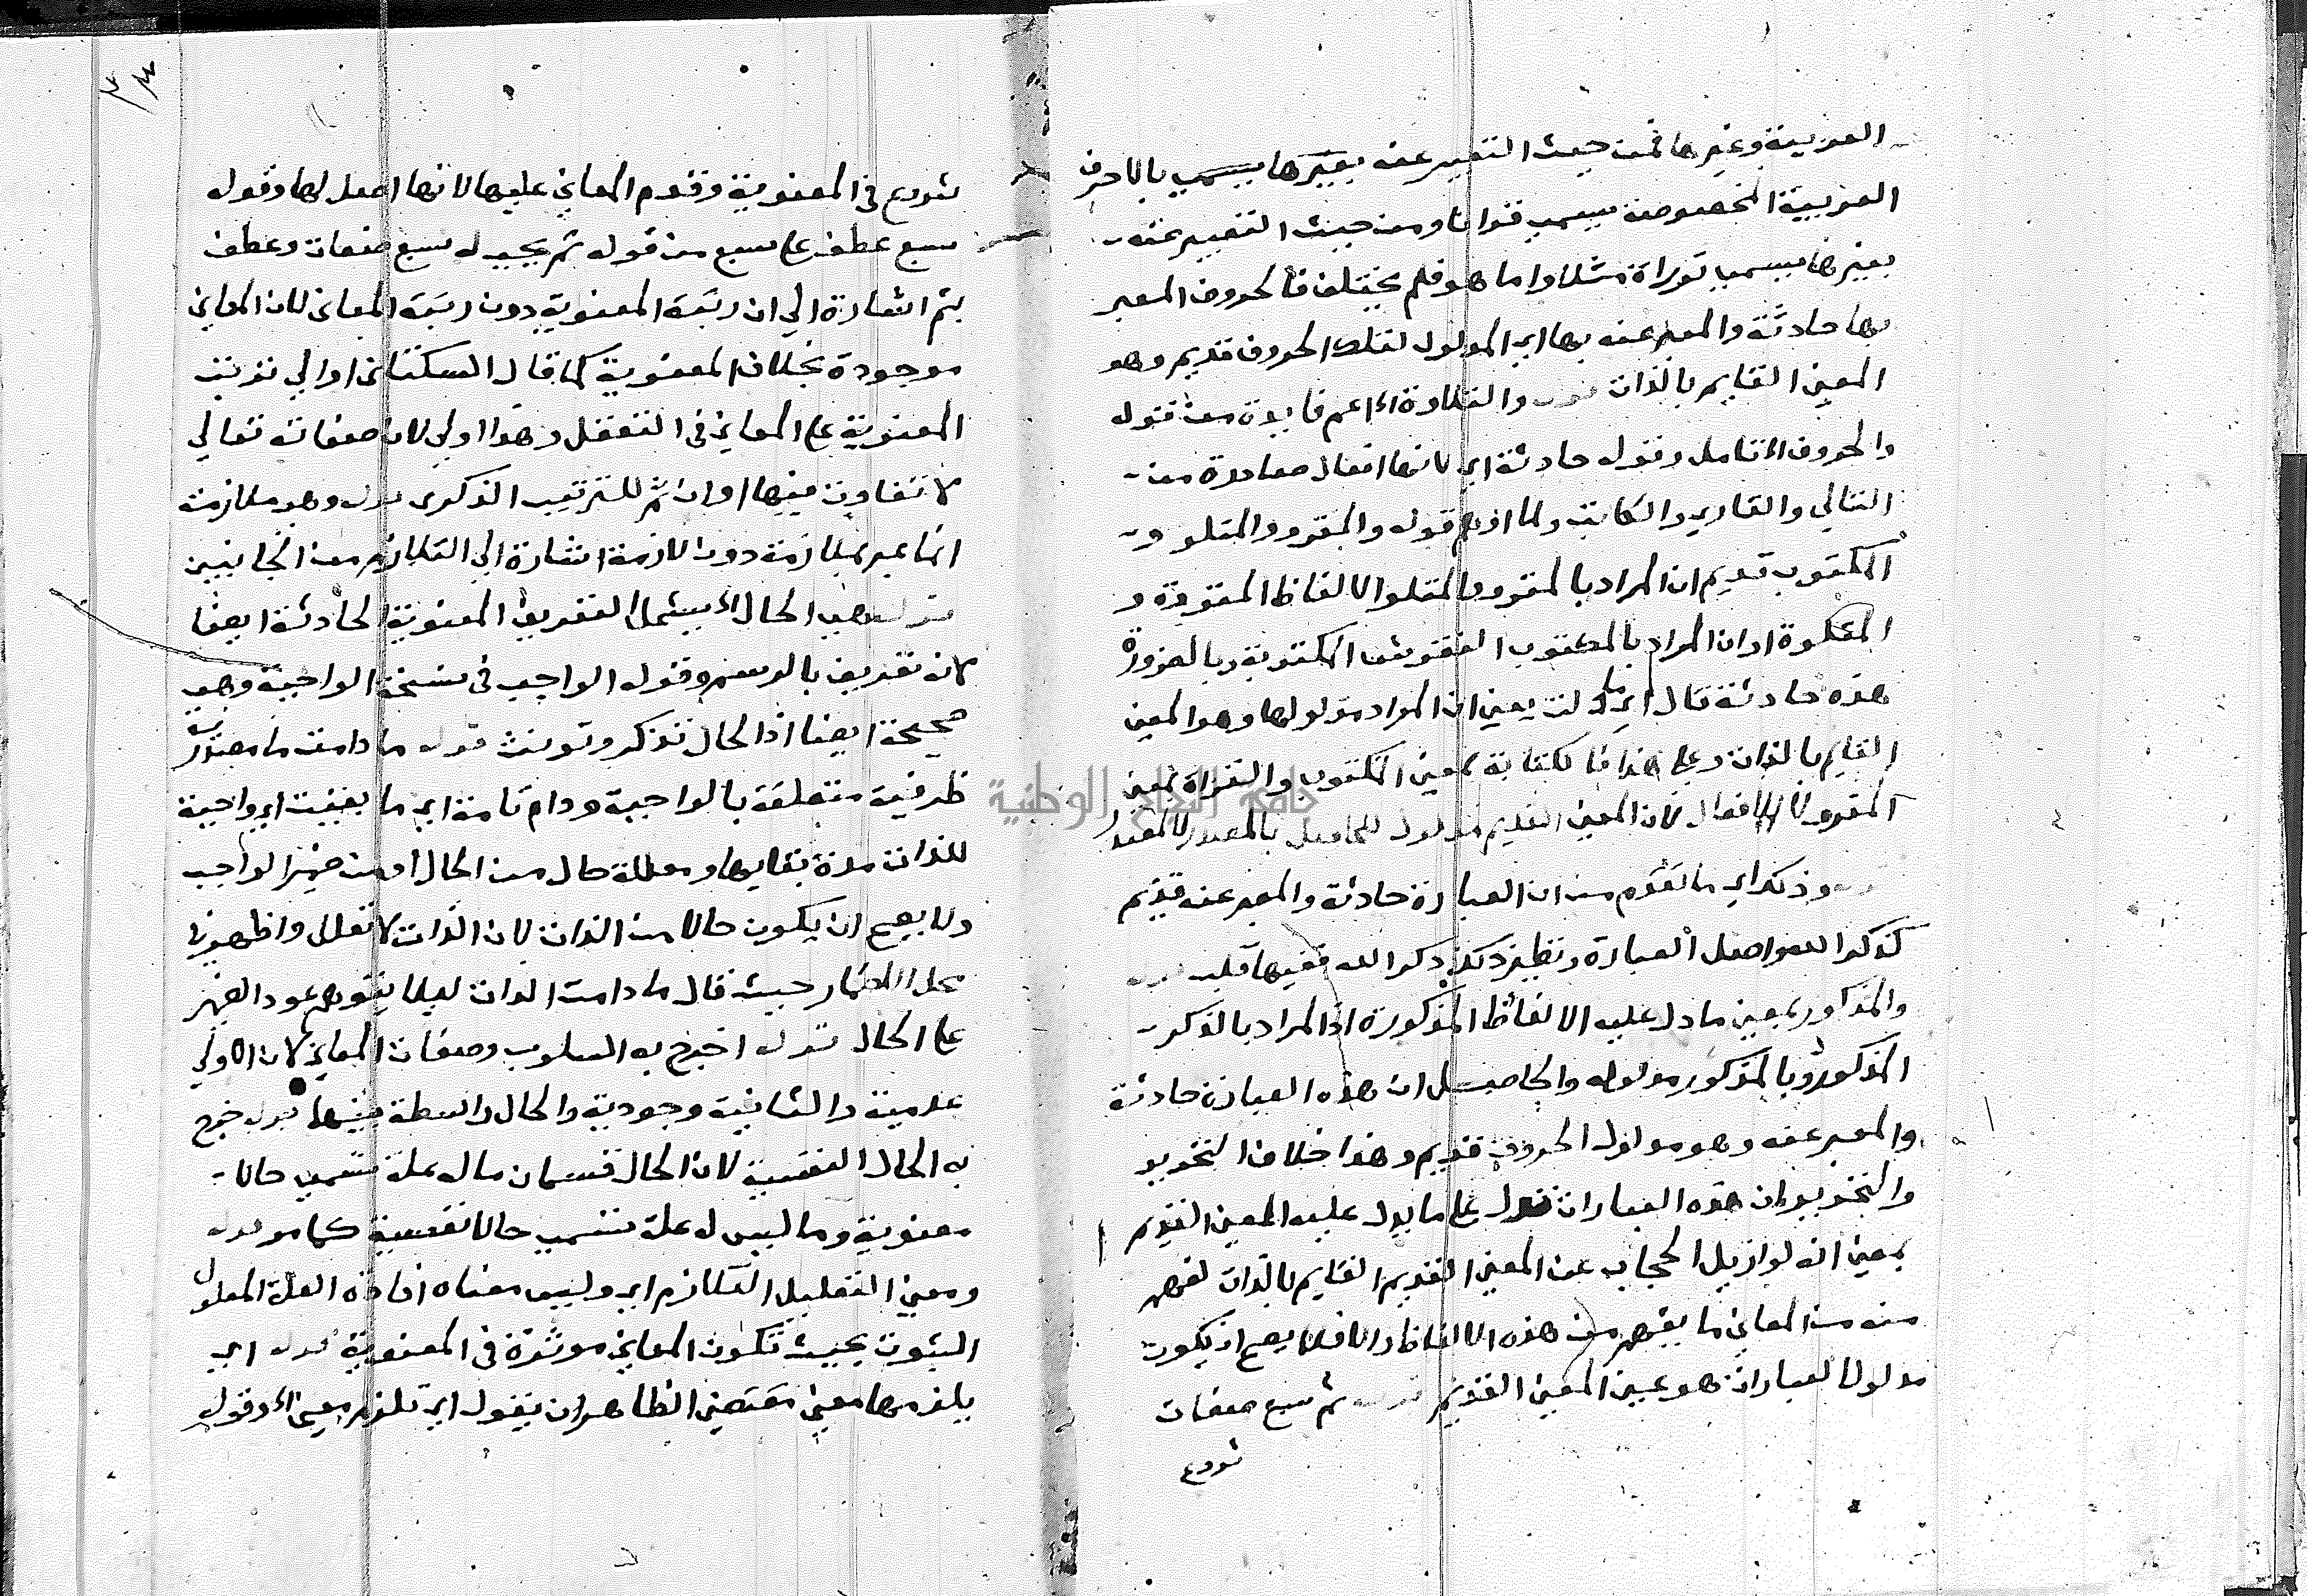 العربية وغيرها فمن حيث التعبير عنه بغيرها يسمي بالاحرف
العربية المخصوصة يسمي قرانا ومن حيث التعبير عنه
بغيرها يسمي توراة مثلا واما هو فلم يختلف فالحروف المعبر
بها حادثة والمعبر عنه بها اي المدلول لتلك الحروف قديم وهو
المعني القايم بالذات قوله والتلاوة الا اعم فايدة من قوله
والحروف الا تامل وقوله حادثة اي لانها افعال صادرة من
التالي والقاري والكاتب ولما اوهم قوله والمقرو والمتلو و
المكتوب قديم ان المراد بالمقرو والمتلو الالفاظ المقروة و
المتلوة وان المراد بالمكتوب النقوش المكتوبة وبالضرورة
هذه حادثة قال اي ما دلت يعني ان المراد مدلولها وهو المعني
القايم بالذات وعلي هذا فالكتابة بمعني المكتوب والقراة بمعني
المقرو لا الافعال لان المعني القديم مدلول للحاصل بالمصدر لا المصدر
قوله وذكر اي ما تقدم من ان العبارة حادثة والمعبر عنه قديم
كذكر الله اصل العبارة ونظير ذلك ذكر الله ففيها قلب قوله
والمذكور بمعني ما دل عليه الالفاظ المذكورة اذ المراد بالذكر
المذكور وبالمذكور مدلوله والحاصل ان هذه العبارات حادثة
والمعبر عنه وهو مدلول الحروف قديم وهذا خلاف التحرير
والتحرير ان هذه العبارات تدل علي ما يدل عليه المعني القديم
بمعني انه لو ازيل الحجاب عن المعني القديم القايم بالذات لفهم
منه من المعاني ما يفهم من هذه الالفاظ والا فلا يصح ان يكون
مدلول العبارات هو عين المعني القديم قوله ثم سبع صفات
شروع
شروع في المعنوية وقدم المعاني عليها لانها اصل لها وقوله
سبع عطف علي سبع من قوله ثم يجب له سبع صفات وعطف
بثم اشارة الي ان رتبة المعنوية دون رتبة المعاني لان المعاني
موجودة بخلاف المعنوية كما قال السكتاني او الي ترتيب
المعنوية علي المعاني في التعقل وهذا اولي لان صفاته تعالي
لا تفاوت فيها او ان ثم للترتيب الذكري قوله وهي ملازمة
انما عبر بملازمة دون لازمة اشارة الي التلازم من الجانبين
قوله هي الحال الا يشمل التعريف المعنوية الحادثة ايضا
لانه تعريف بالرسم وقوله الواجب في نسخة الواجبة وهي
صحيحة ايضا اذ الحال تذكر وتونث قوله ما دامت ما مصدرية
ظرفية متعلقة بالواجبة ودام تامة اي ما بقيت اي واجبة
للذات مدة بقايها ومعللة حال من الحال او من ضمير الواجب
ولا يصح ان يكون حالا من الذات لان الذات لا تعلل واظهر في
محل الاضمار حيث قال ما دامت الذات ليلا يتوهم عود الضمير
علي الحال قوله اخرج به السلوب وصفات المعاني لان الاولي
عدمية والثانية وجودية والحال واسطة بينهما قوله خرج
به الحال النفسية لان الحال قسمان ما له علة تسمي حالا
معنوية وما ليس له علة تسمي حالا نفسية كما مر قوله
ومعني التعليل التلازم اي وليس معناه افادة العلة المعلول
الثبوت بحيث تكون المعاني موثرة في المعنوية قوله اي
يلزمها معني مقتضي الظاهر ان يقول اي تلزم معني الا وقوله